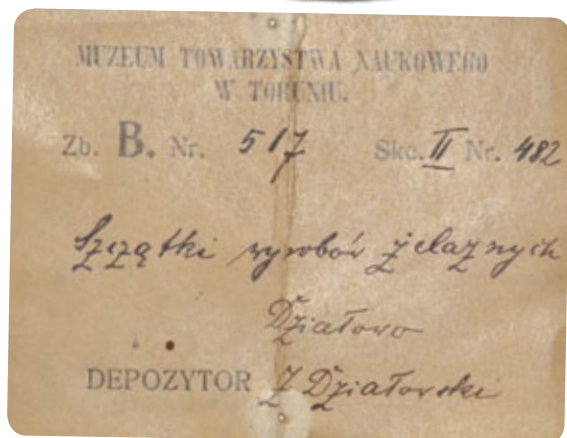 MUZEUM TOWARZYSTWA NAUKOWEGO
W TORUNIU.
Zb. B. Nr. 517 Skc. II Nr. 482
Szczątki wyrobów żelaznych
Działowo
DEPOZYTOR Z Działowski